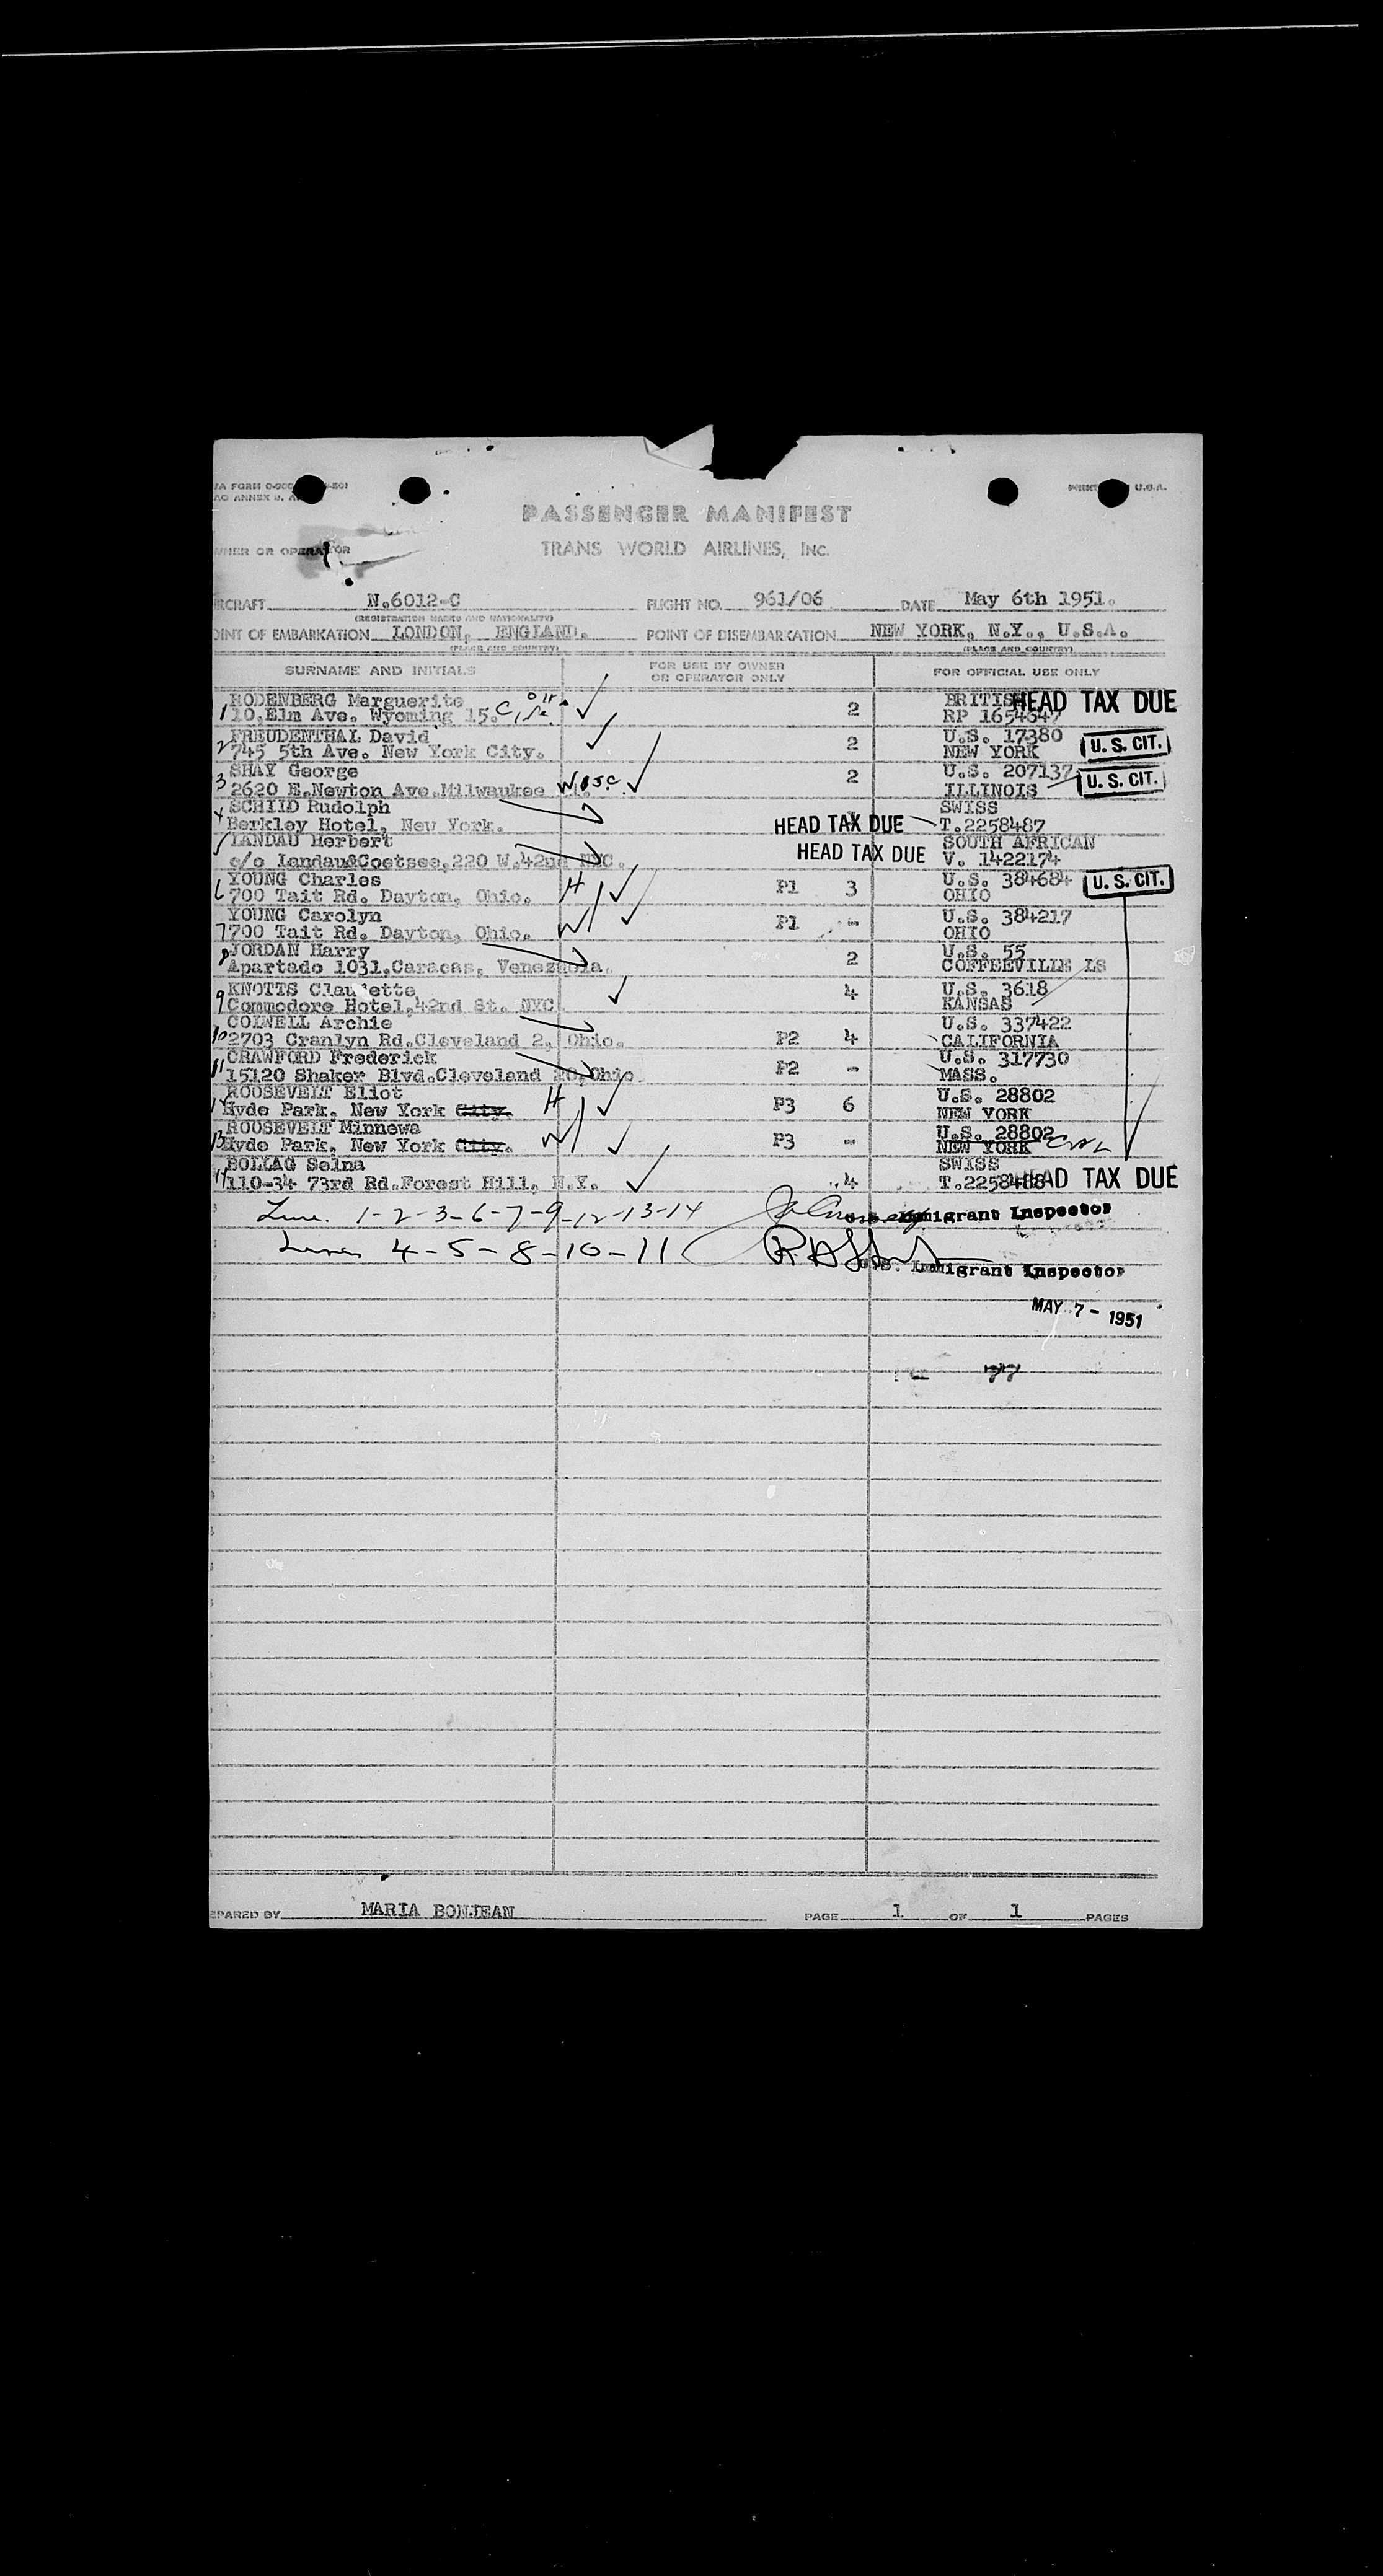 PASSENGER MANIFEST
TRANS WORLD AIRLINES, INC.
OWNER OR OPERATOR
N.6012-C FLIGHT NO. 961/06 DATE May 6th 1951.
(REGISTRATION MARKS AND NATIONALITY)
POINT OF EMBARKATION LONDON, ENGLAND. POINT OF DISEMBARKATION NEW YORK, N.Y., U.S.A.
(PLACE AND COUNTRY) (PLACE AND COUNTRY)
SURNAME AND INITIALS FOR USE BY OWNER OR OPERATOR ONLY FOR OFFICIAL USE ONLY
RODENBERG Marguerite BRITISH HEAD TAX DUE
1 10,Elm Ave. Wyoming 15. 2 RP 1654647
FREUDENTHAL David U.S. 17380
2 745 5th Ave. New York City. 2 NEW YORK U. S. CIT.
SHAY George U.S. 207137
3 2620 E.Newton Ave.Milwaukee Wisc. 2 ILLINOIS U. S. CIT.
SCHIID Rudolph SWISS
4 Berkley Hotel, New York. HEAD TAX DUE T.2258487
LANDAU Herbert SOUTH AFRICAN
5 c/o Landau&Coetsee,220 W.42nd NYC. HEAD TAX DUE V. 1422174
YOUNG Charles U.S. 384684
6 700 Tait Rd. Dayton, Ohio. H P1 3 OHIO U. S. CIT.
YOUNG Carolyn U.S. 384217
7 700 Tait Rd. Dayton, Ohio. W P1 - OHIO
JORDAN Harry U.S. 55
8 Apartado 1031,Caracas, Venezuela. 2 COFFEEVILLE LS
KNOTTS Claudette U.S. 3618
9 Commodore Hotel,42nd St. NYC 4 KANSAS
COLWELL Archie U.S. 337422
10 2703 Cranlyn Rd.Cleveland 2, Ohio. P2 4 CALIFORNIA
CRAWFORD Frederick U.S. 317730
11 15120 Shaker Blvd.Cleveland 20,Ohio P2 - MASS.
ROOSEVELT Eliot U.S. 28802
12 Hyde Park, New York City. H P3 6 NEW YORK
ROOSEVELT Minnewa U.S. 28802
13 Hyde Park, New York City. W P3 - NEW YORK
BOLLAG Selna SWISS
14 110-34 73rd Rd.Forest Hill, N.Y. 4 T.2258488 HEAD TAX DUE
Line. 1-2-3-6-7-9-12-13-14 U.S. Immigrant Inspector
Lines 4-5-8-10-11 U.S. Immigrant Inspector
MAY 7 - 1951
PREPARED BY MARIA BONJEAN PAGE 1 OF 1 PAGES